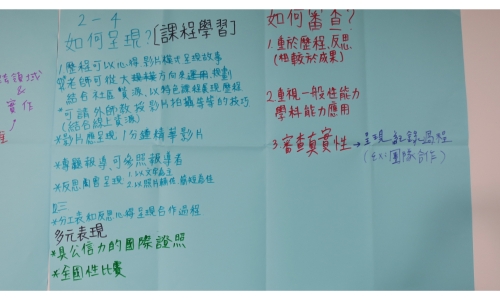 2-4
如何呈現?[課程學習]
1.歷程可以心得、影片模式呈現故事
老師可從大項標方向來運用、規劃
結合社區資源,以特色課程展現歷程
*可請外師教授影片拍攝等等的技巧
(結合線上資源)
*影片應呈現1分鐘精華影片
*專題報導,可參照報導者
*反思圖會呈現 1.以文學為主
2.以照片為主,簡短為佳
*分工表和反思心得呈現合作過程
多元表現
*具公信力的國際證照
*全國性比賽
如何審查?
1.重於歷程、反思
(相較於成果)
2.重視一般性能力
學科能力應用
3.審查真實性→呈現 記錄過程
(ex:團隊合作)
跨領域
&
實作